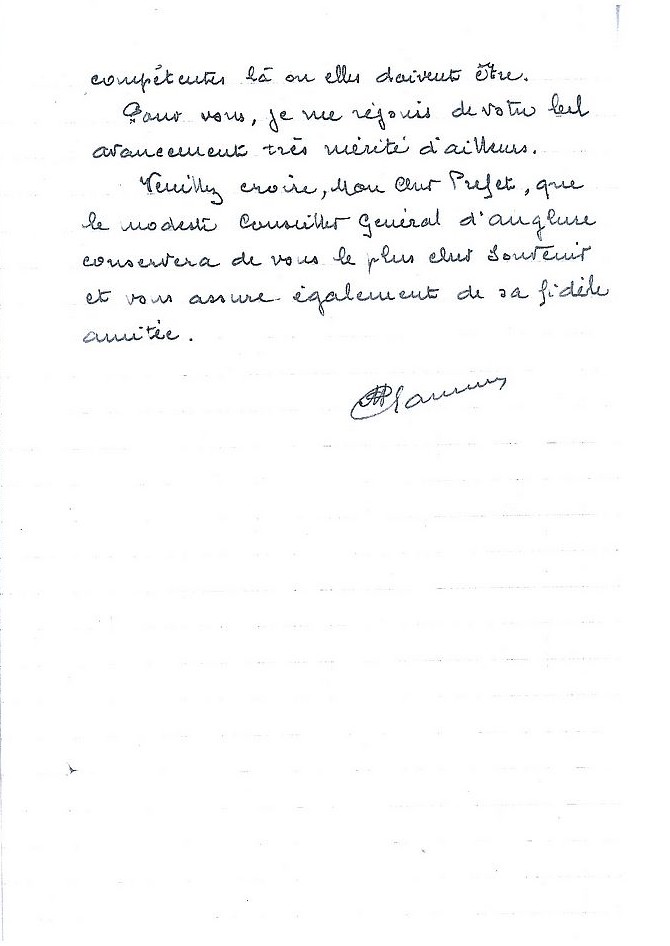 compétentes là ou elles doivent être.
Pour vous, je me réjouis de votre bel
avancement très mérité d'ailleurs.
Veuillez croire, Mon Cher Prefet, que
le modeste Conseiller Général d'anglure
conservera de vous le plus cher Souvenir
et vous assure également de sa fidèle
amitée.